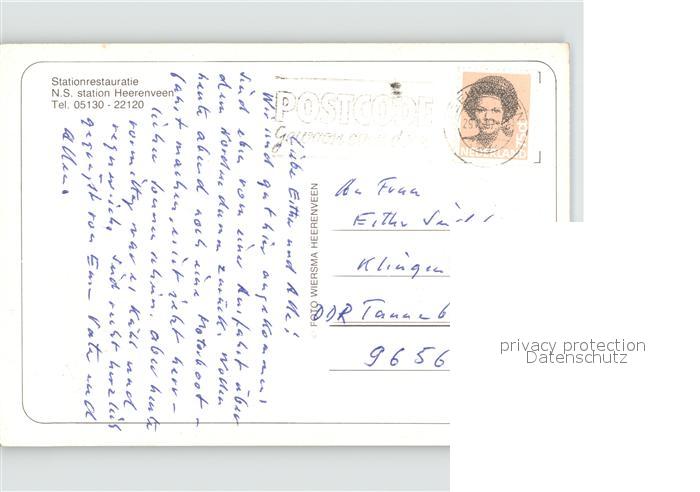 Stationrestauratie
N.S. station Heerenveen
Tel. 05130 - 22120
POSTCODE
NEDERLAND
FOTO WIERSMA HEERENVEEN
Liebe Esther und Alle!
Wir sind gut hier angekommen,
sind eben von einer Ausfahrt über
den Norden dann zurück. Wollen
heute abend noch eine Motorboot-
fahrt machen, ist jetzt herr-
licher Sonnenschein. Aber heute
vormittag war es kühl und
regnerisch. Sind recht herzlich
gegrüßt von Eurem Vater und
Allen.
An Frau
Esther
Klingen
DDR Tanneb
9656
privacy protection
Datenschutz